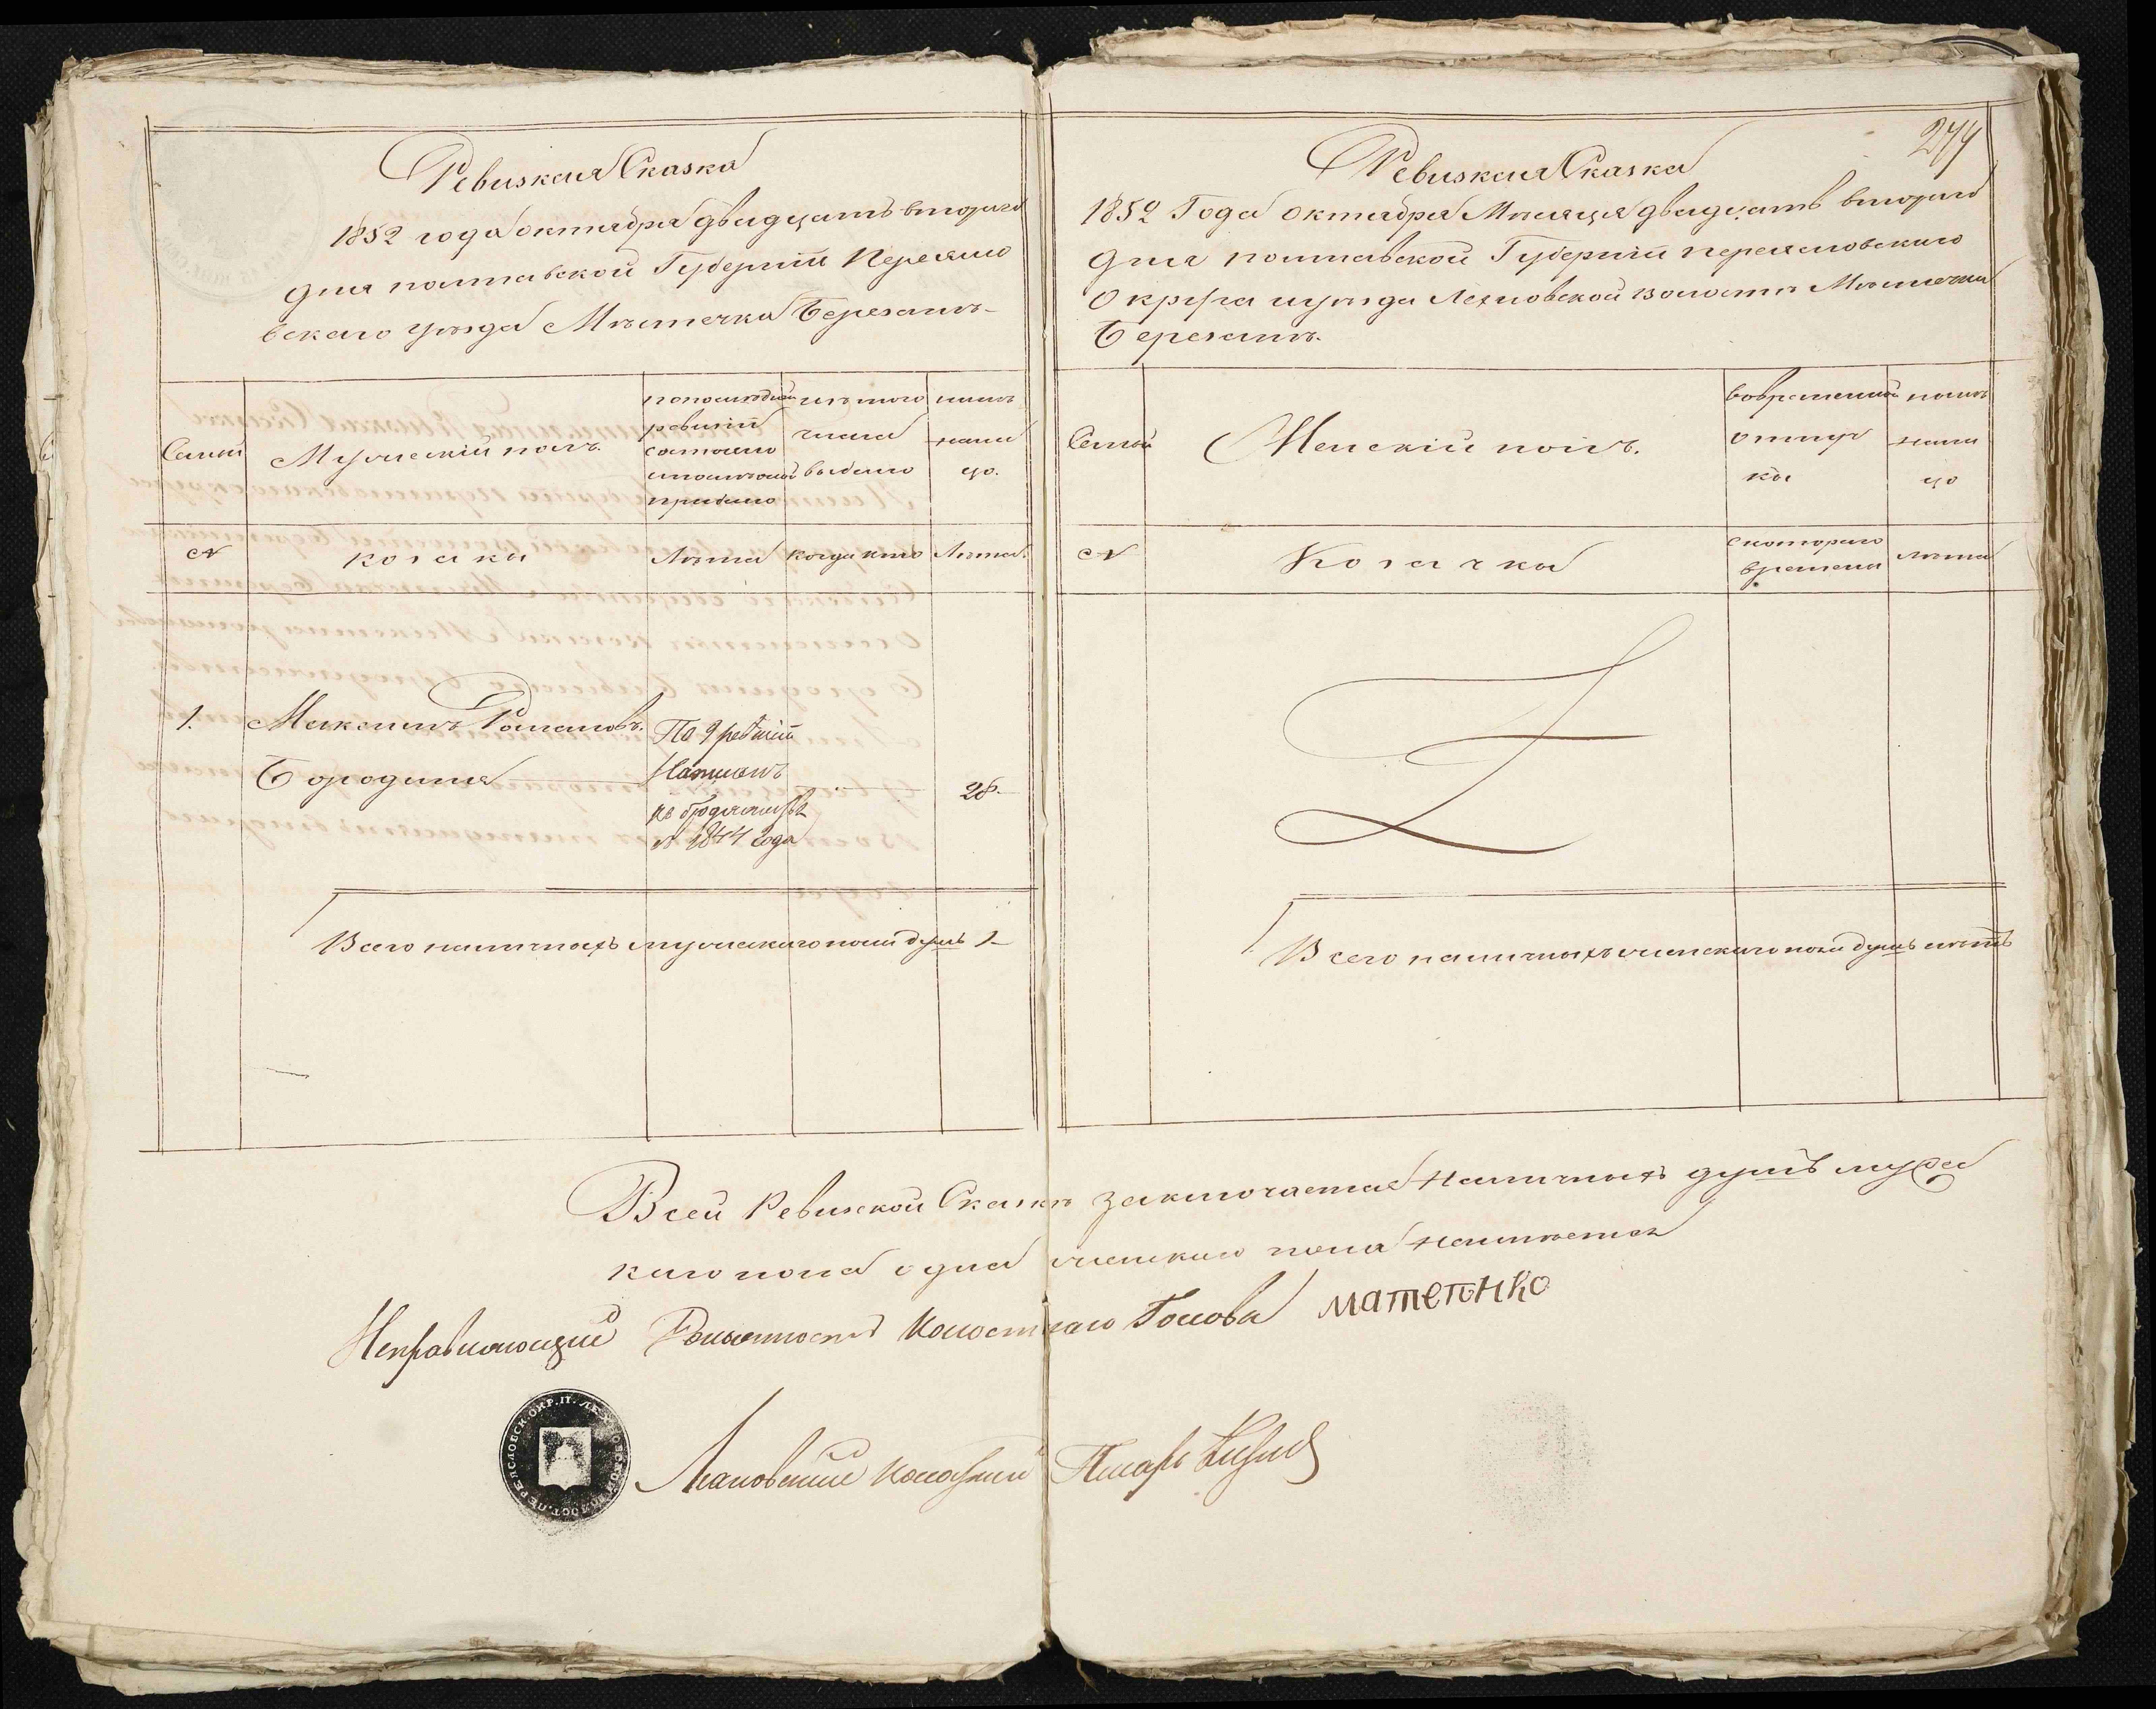 Ревизкая Сказка
1852 года октабра двадцать втораго
дня полтавской Губерніи Переясло
вскаго уѣзда Мѣстечка Березань-
Семьи
Мужескій полъ.
попослѣдней
ревизіи
состояло
ипослѣтой
прибыло
изътого
числа
выбыло
нынѣ
нали
цо.
№
козаки
Лѣта
когда имо
Лѣта.
1.
Максимъ Романовъ.
Бородиня
По 9 ревизіи
Написанъ
въ 1844 года
28.
Всего наличныхъ мужескаго пола душъ 1
274
Ревизкая Сказка
1852 Года октабра Мѣсяца двадцать втораго
дня полтавской Губерніи переясловскаго
Округа иуѣзда Лехновской волости Мѣстечка
Березань.
Семьи
Женскій полъ.
вовременной
отлуч
кѣ
нынѣ
нали
цо
№
Козачка
скотораго
времени
лѣта
Всего наличныхъ женскаго пола душъ нѣтъ
Всей Ревизской Сказкѣ заключается Наличныхъ душъ мужес
каго пола одна женскаго пола неимѣется
Исправляющій Должность Волостнаго Голова матепнко
ПЕРЕЯСЛОВСК. ОКР.
Волосный Писарь